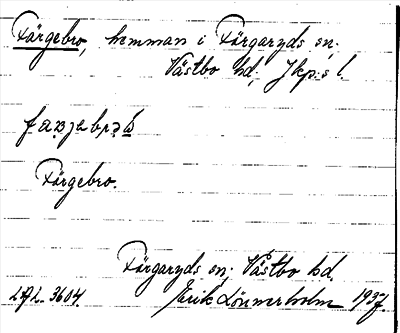 Färgebro, hemman i Färgaryds sn.
Västbo hd; Jkp:s l.
Färgebro.
Färgaryds sn; Västbo hd,
Erik Lönnerholm 1937.
LAL 3604.